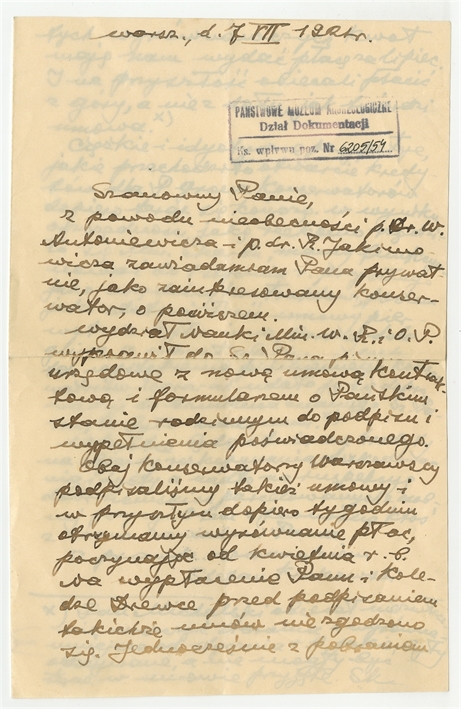 Warsz., d. 7 VIII 192 r.
PAŃSTWOWE MUZEUM ARCHEOLOGICZNE
Dział Dokumentacji
Ks. wpływu poz. Nr 6205/54
Szanowny Panie,
z powodu nieobecności p. Dr. W.
Antoniewicza i p. dr. R. Jakimo
wicza zawiadamiam Pana prywat-
nie, jako zainteresowany konser-
wator, o poniższem.
Wydział Nauki Min. W. R. i O. P.
wyprawił do Sz. Pana pismo
urzędowe z nową umową kontrak-
tową i formularzem o Pańskim
stanie rodzinnym do podpisu i
wypełnienia poświadczonego.
Obaj konserwatorzy Warszawscy
podpisaliśmy takież umowy i
w przyszłym dopiero tygodniu
otrzymamy wyrównanie płac,
poczynając od kwietnia r. b.
Na wypłacenie Panu i Kole-
dze Drewce przed podpisaniem
takichże umów nie zgodzono
się. Jednocześnie z pobraniem